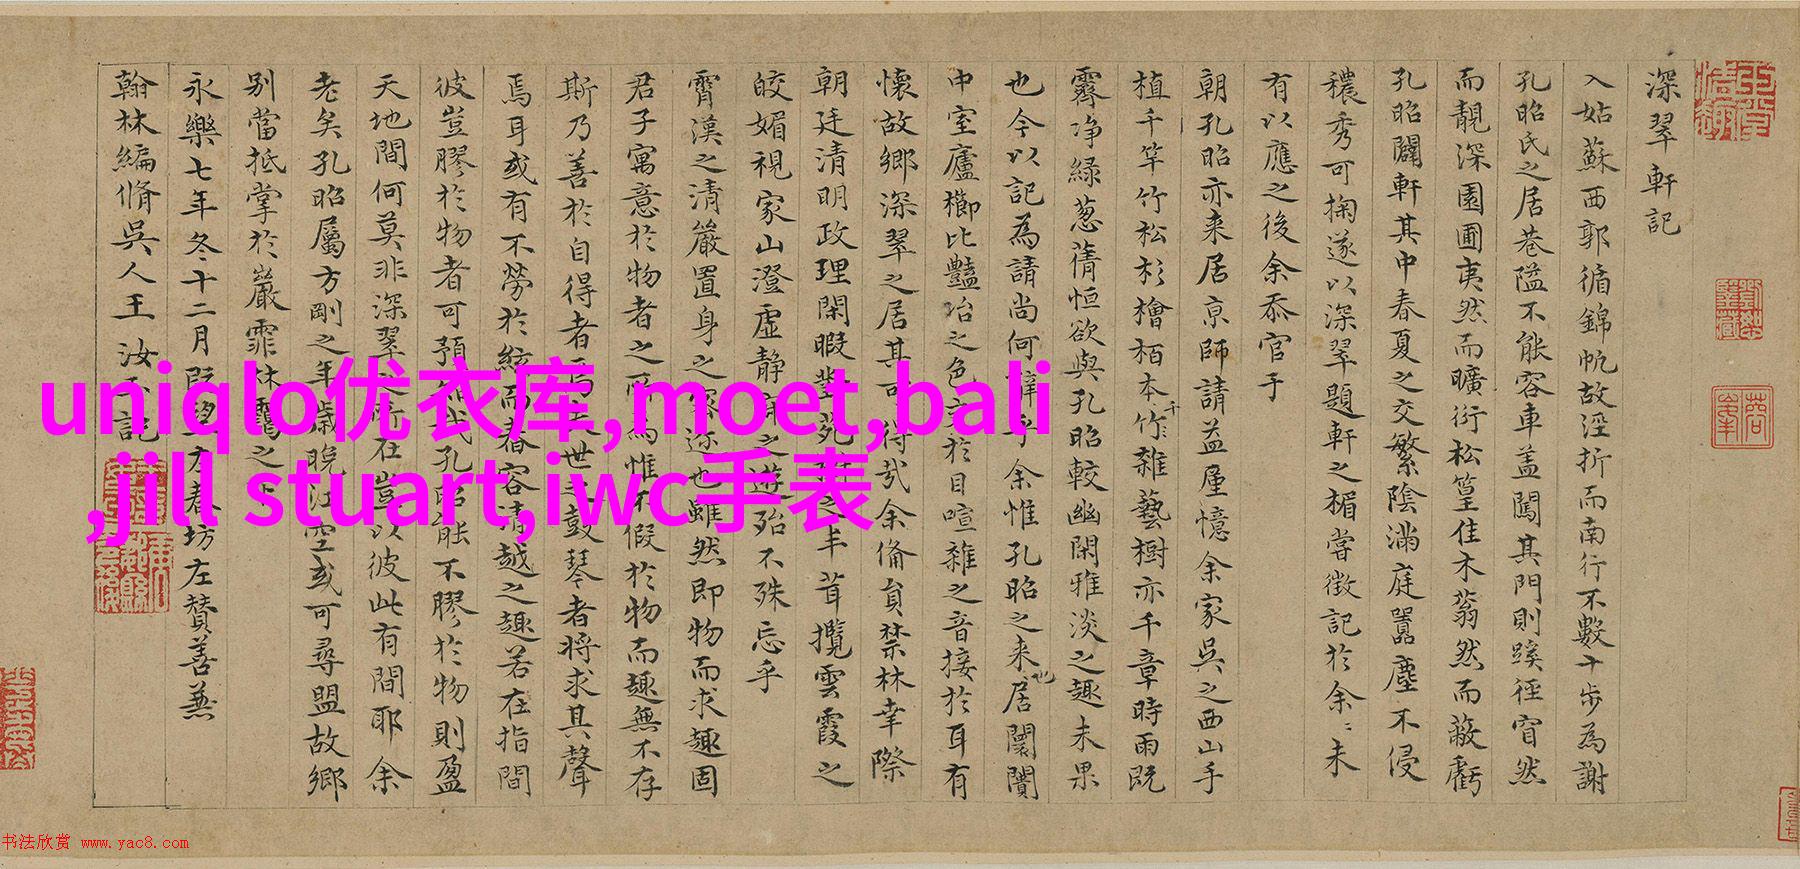 深翠軒記
入姑蘇西郭循錦帆故淫折而南行不數十步為謝
孔昭氏之居巷隘不能容車盖闖其門則蹊徑窅然
而靚深園圃夷然而曠衍松篁佳木蓊然而蔽虧
孔昭闢軒其中春夏之交繁陰滿庭囂塵不侵
穠秀可掬遂以深翠題軒之楣嘗徴記於余〻未
有以應之後余忝官于
朝孔昭亦来居京師請益廑憶余家吳之西山手
植千竿竹松杉檜栢本竹千雜藝樹亦千章時雨既
霽净緑葱蒨恒欲與孔昭較幽閑雅淡之趣未果
也今以記為請尚何辞乎余惟孔昭之来居也闤闠
中室廬櫛比豔冶之色交於目喧雜之音接於耳有
懷故鄉深翠之居其可得㢤余俻員禁林幸際
朝廷清明政理閑暇之年茸攬雲霞之
皎媚視家山澄虚静之遊殆不殊忘乎
霄漢之清嚴置身之迹也雖然即物而求趣固
君子寓意於物者之所為惟不假於物而趣無不存
斯乃善於自得者焉世之鼓琴者将求其聲
焉耳或有不勞於絃而春容清越之趣若在指間
彼豈膠於物者可預孔昭能不膠於物則盈
天地間何莫非深翠之所在豈以彼此有間耶余
老矣孔昭屬方剛之年歲晚江空或可尋盟故鄉
别當抵掌於巖霏林靄之下
永樂七年冬十二月既望右春坊左贊善兼
翰林編脩吳人王汝玉記
uniqlo优衣库,moet,bali
,jill stuart,iwc手表
书法欣赏 www.yac8.com